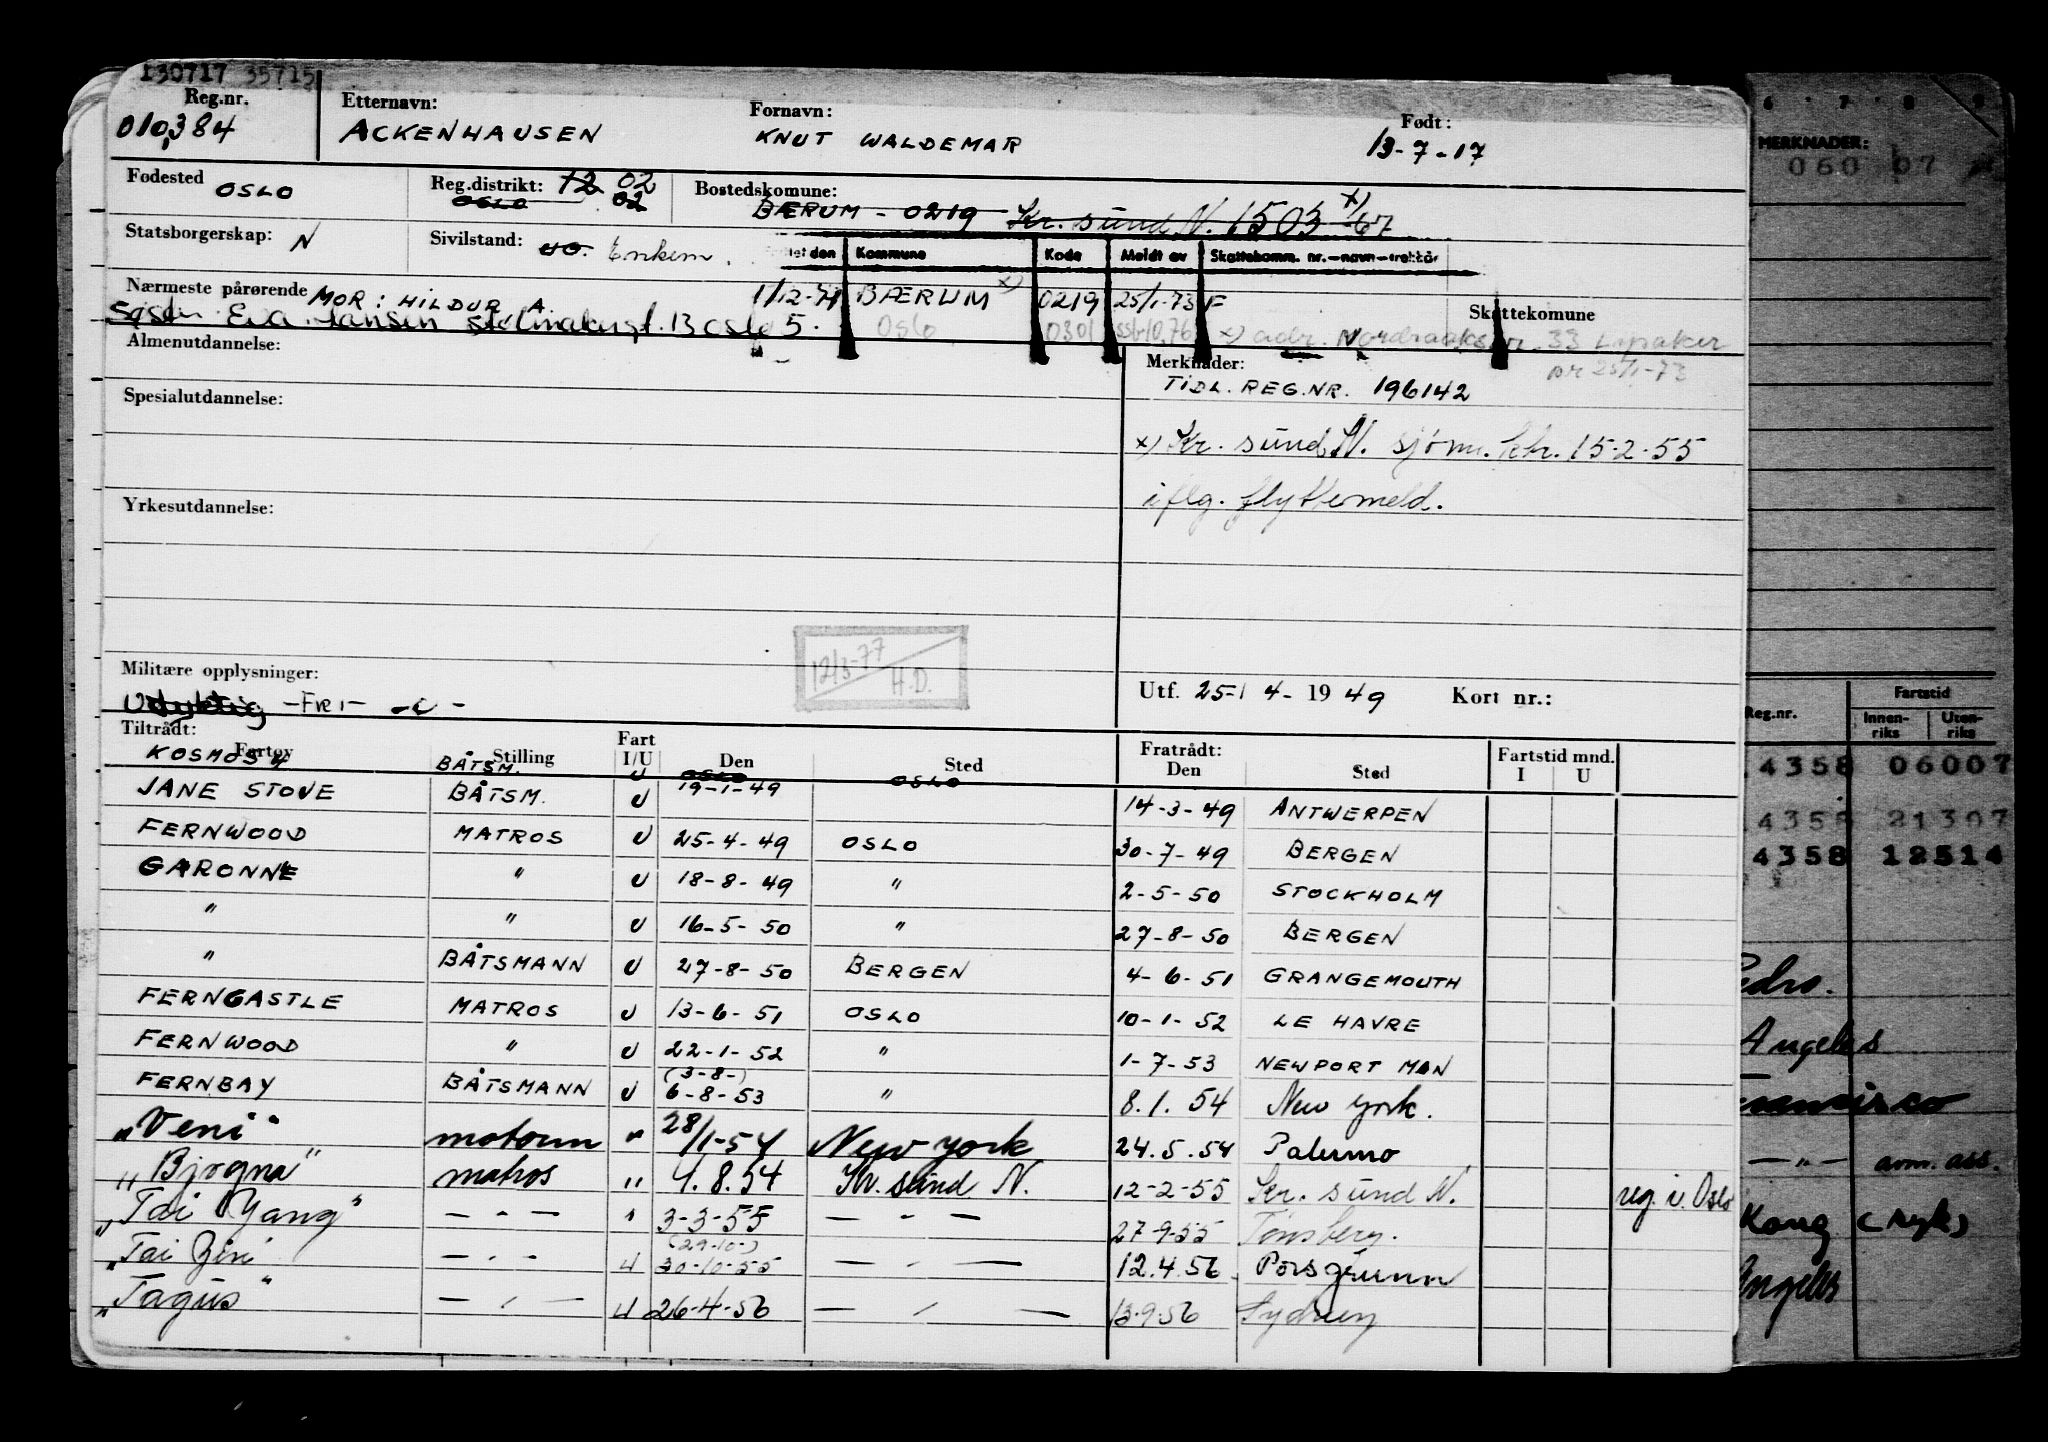 130717 35715
Reg.nr. Etternavn: Fornavn: Født:
010384 ACKENHAUSEN KNUT WALDEMAR 13-7-17
Fødested OSLO Reg.distrikt: 12 02 Bostedskomune:
OSLO 02 BÆRUM - 0219 Kr. sund N. 1503 x) /67
Statsborgerskap: N Sivilstand: UG. Enkem.
den Kommune Kode Meldt av Skattekomm. nr.-navn-trekkår
Nærmeste pårørende MOR: HILDUR A. 1/12-71 BÆRUM x) 0219 25/1-73 F Skattekomune
Søster Eva Hansen 13 Oslo 5. Oslo 0301 x) adr. 33 Lysaker
25/1-73
Almenutdannelse: Merknader:
TIDL. REG.NR. 196142
Spesialutdannelse:
x) Kr. sund N. sjøm. ktr. 15-2-55
iflg. flyttemeld.
Yrkesutdannelse:
12/3-77 H.D.
Militære opplysninger: Utf. 25-4-1949 Kort nr.:
Udyktig - Fri -
Tiltrådt: Fratrådt: Fartstid mnd.
Fartøy Stilling Fart I/U Den Sted Den Sted I U
KOSMOS 4 BÅTSM. U OSLO OSLO
JANE STOVE BÅTSM. U 19-1-49 14-3-49 ANTWERPEN
FERNWOOD MATROS U 25-4-49 OSLO 30-7-49 BERGEN
GARONNE " U 18-8-49 " 2-5-50 STOCKHOLM
" " U 16-5-50 " 27-8-50 BERGEN
" BÅTSMANN U 27-8-50 BERGEN 4-6-51 GRANGEMOUTH
FERNCASTLE MATROS U 13-6-51 OSLO 10-1-52 LE HAVRE
FERNWOOD " U 22-1-52 " 1-7-53 NEWPORT MON
(3-8-)
FERNBAY BÅTSMANN U 6-8-53 " 8.1.54 New York.
"Veni" motorm " 28/1-54 New York 24.5.54 Palermo
"Bjørgna" matros " 4.8.54 Kr. sund N. 12-2-55 Kr. sund N. reg. i. Oslo
"Tai Yang" — " — " 3-3-55 — " — 27-9-55 Tønsberg.
(29-10-)
"Tai Yin" — " — U 30-10-55 — " — 12.4.56 Porsgrunn
"Tagus" — " — U 26-4-56 — " — 13-9-56 Sydney
6 7 8 9
MERKNADER:
060 07
Fartstid
Reg.nr. Innenriks Utenriks
4358 06007
4358 21307
4358 12514
Pedro.
Angeles
— " — avm. ass.
Kong (syk)
Angeles